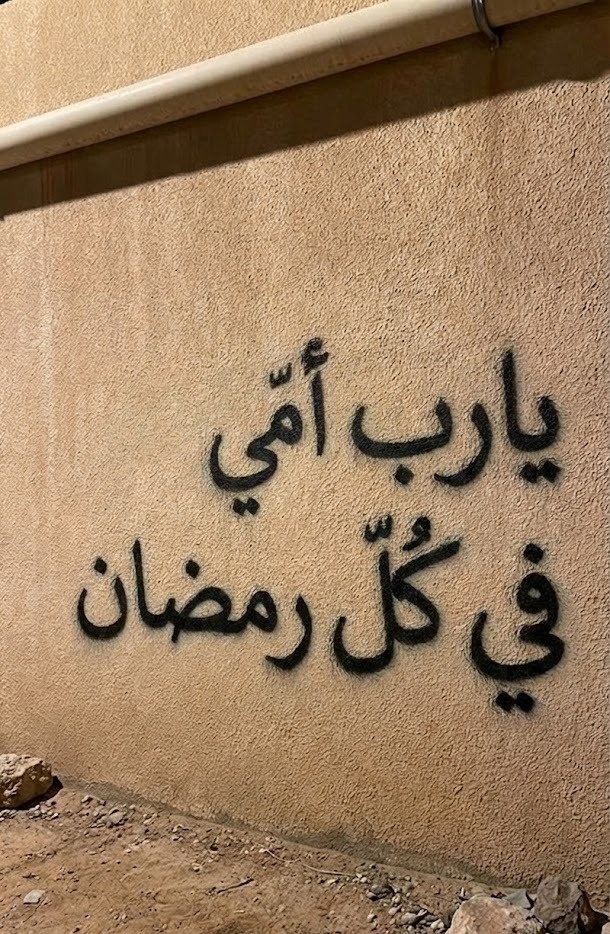 يارب أمّي
في كُلّ رمضان